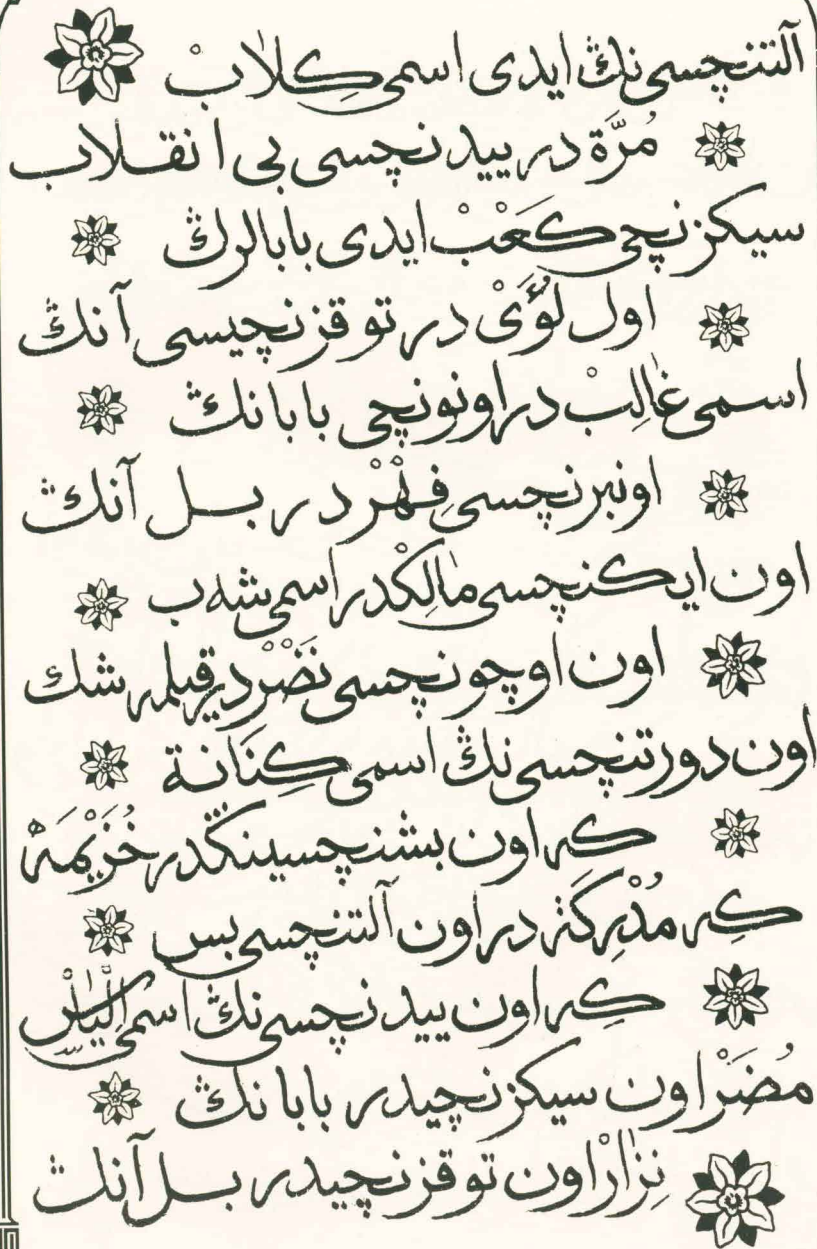 آلتنچسی‌نڭ ایدی اسمی کِلٰابْ
مُرَّة در ییدنچسی بی انقلاب
سیکزنچی کَعَبْ ایدی بابالرڭ
اول لُؤَیْ در توقزنچیسی آنڭ
اسمی غٰالِبْ در اونونچی بابانڭ
اونبرنچسی فِهْرْ در بل آنڭ
اون ایکنچسی مٰالِكْدر اسمی شه‌ب
اون اوچونچسی نَضْرْدیر قیلمه شك
اون دورتنچسی‌نڭ اسمی کِنَانة
که اون بشنچسینڭدر خُزَیْمَهْ
کِه مُدْرِکَة در اون آلتنچسی بس
که اون ییدنچسی‌نڭ اسمی اِلْیٰاسْ
مُضَرْ اون سیکزنچیدر بابانڭ
نِزٰارْ اون توقزنچیدر بل آنڭ